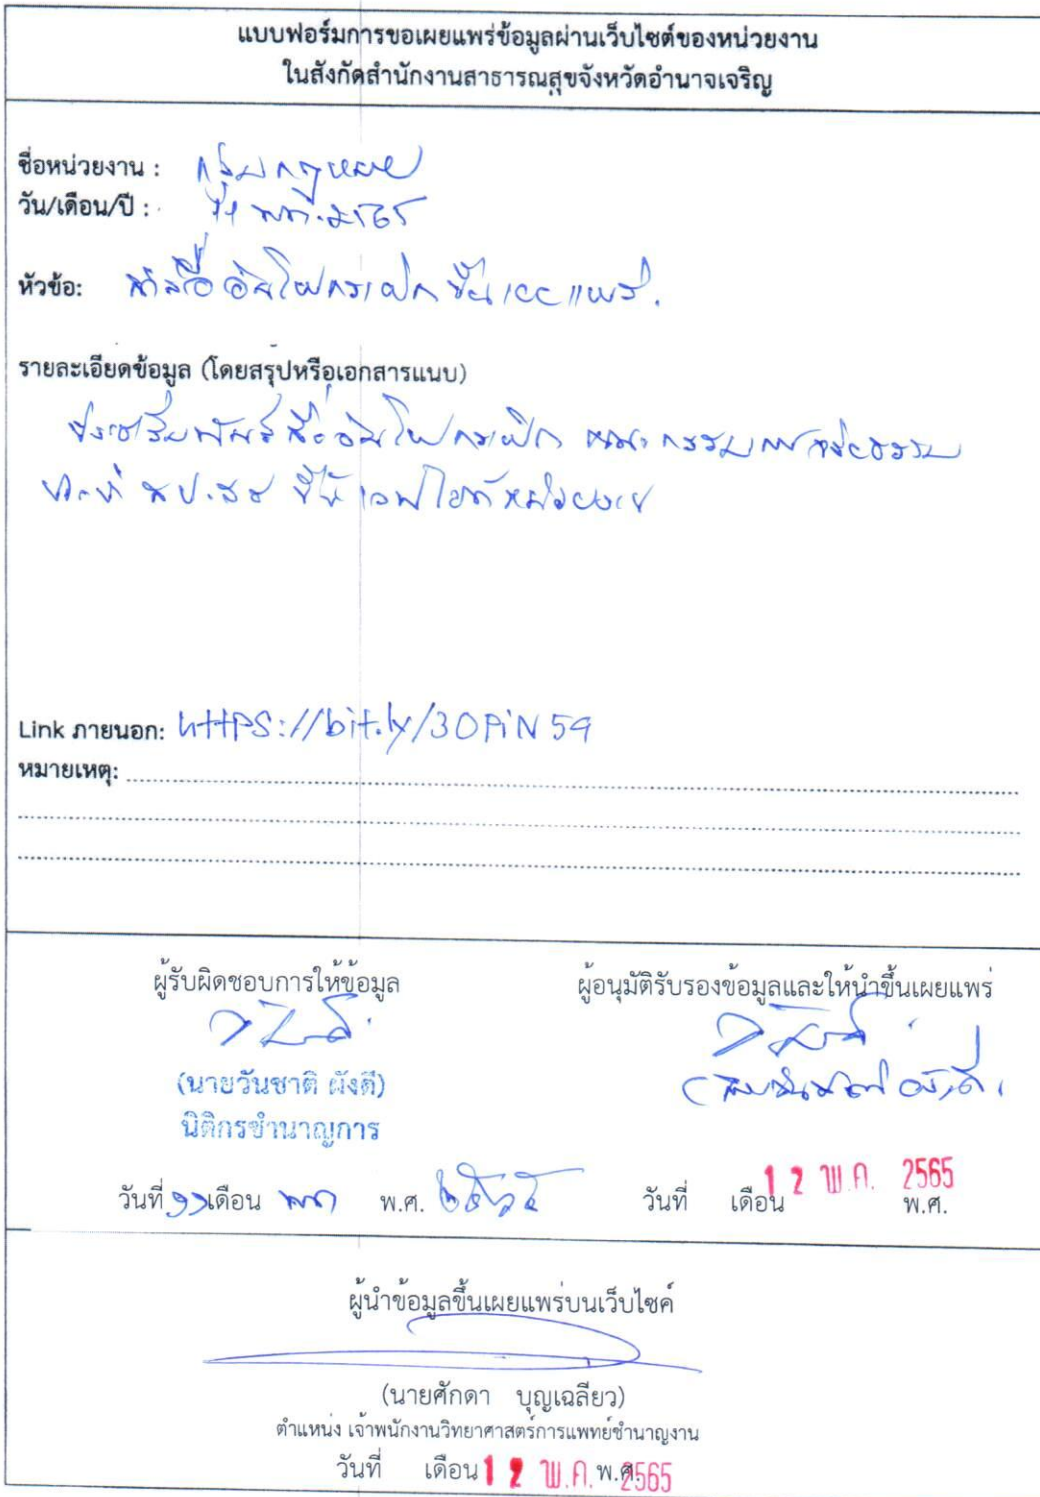 แบบฟอร์มการขอเผยแพร่ข้อมูลผ่านเว็บไซต์ของหน่วยงาน
ในสังกัดสำนักงานสาธารณสุขจังหวัดอำนาจเจริญ
ชื่อหน่วยงาน : กลุ่มกฎหมาย
วัน/เดือน/ปี : 11 พ.ค. 2565
หัวข้อ: อินโฟกราฟิก ขึ้นเผยแพร่.
รายละเอียดข้อมูล (โดยสรุปหรือเอกสารแนบ)
ประชาสัมพันธ์สื่ออินโฟกราฟิก คณะกรรมการจริยธรรม
Link ภายนอก: HTTPS://bit.ly/3OPiN59
หมายเหตุ:
ผู้รับผิดชอบการให้ข้อมูล ผู้อนุมัติรับรองข้อมูลและให้นำขึ้นเผยแพร่
(นายวันชาติ ผังดี)
นิติกรชำนาญการ
วันที่ ๑๑ เดือน พ.ค. พ.ศ. ๒๕๖๕ วันที่ เดือน 12 พ.ค. 2565 พ.ศ.
ผู้นำข้อมูลขึ้นเผยแพร่บนเว็บไซค์
(นายศักดา บุญเฉลียว)
ตำแหน่ง เจ้าพนักงานวิทยาศาสตร์การแพทย์ชำนาญงาน
วันที่ เดือน 12 พ.ค. พ.ศ. 2565